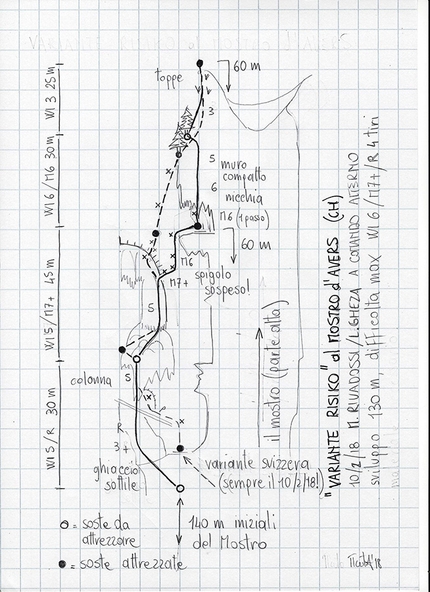 60 m
toppe
WI 3 25 m
3
WI 6 / M6 30 m
5
6
muro
compatto
nicchia
M6 (1 passo)
60 m
WI 5 / M7+ 45 m
M6
M7+
spigolo
sospeso!
5
il mostro (parte alta)
colonna
5
WI 5 / R 30 m
R
3+
ghiaccio
sottile
variante svizzera
(sempre il 10/2/18!)
140 m iniziali
del Mostro
= soste da
attrezzare
= soste attrezzate
"VARIANTE RISIKO" al MOSTRO d'AVERS (CH)
10/2/18 M. RIVADOSSI / L. GHEZA A COMANDO ALTERNO
sviluppo 130 m, difficoltà max WI 6 / M7+ / R 4 tiri